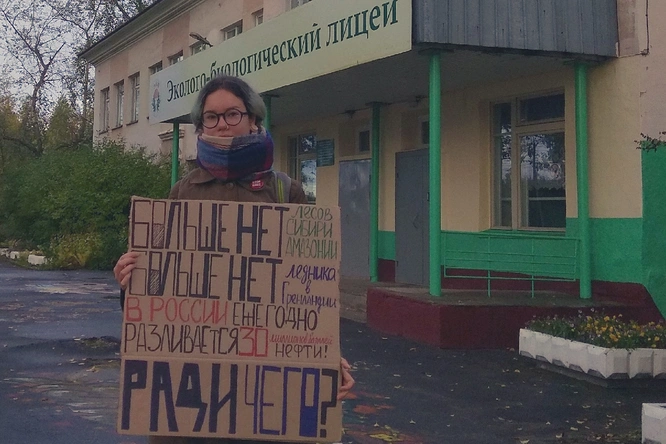 Эколого-биологический лицей
БОЛЬШЕ НЕТ ЛЕСОВ СИБИРИ АМАЗОНИИ
БОЛЬШЕ НЕТ ледника в Гренландии
В РОССИИ ЕЖЕГОДНО
РАЗЛИВАЕТСЯ 30 миллионов баррелей НЕФТИ!
РАДИ ЧЕГО?